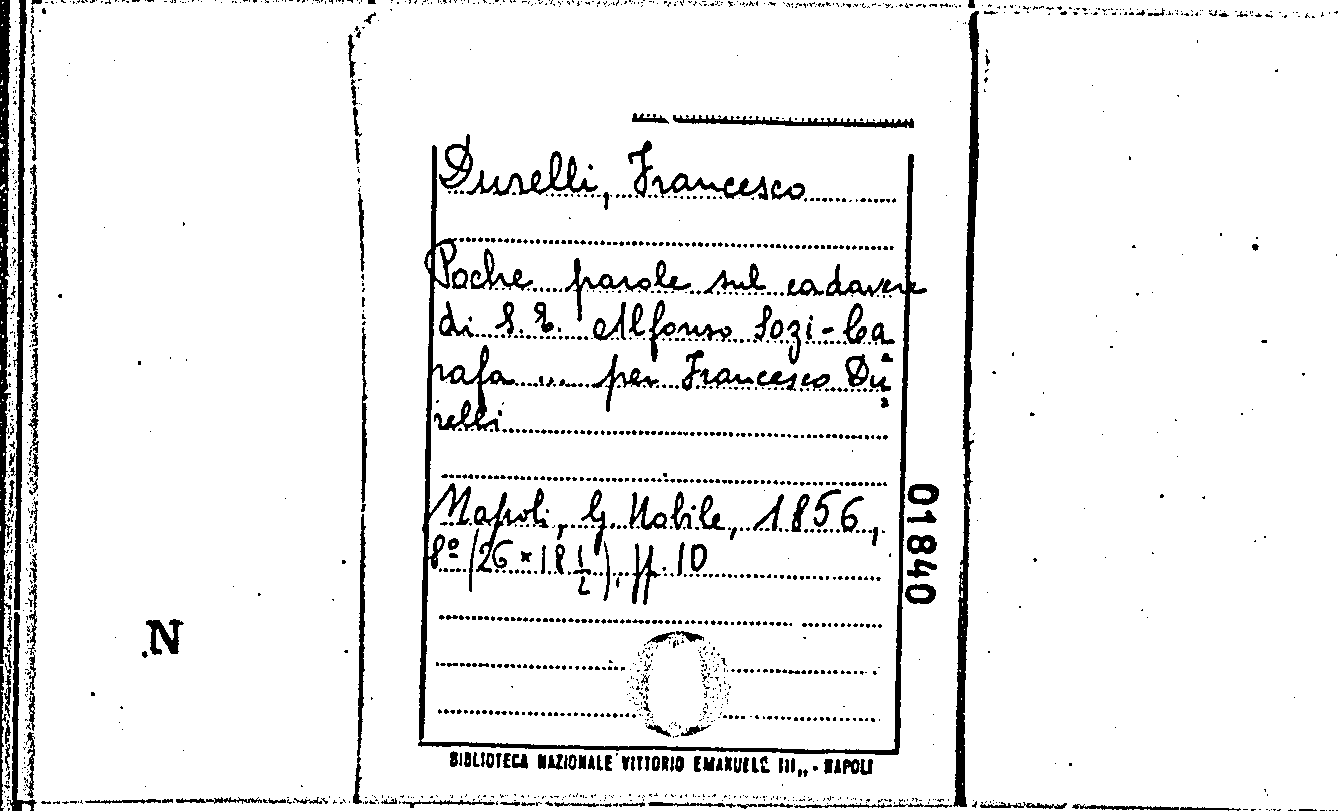 Durelli, Francesco
Poche parole sul cadavere
di S. E. Alfonso Sozi-Ca
rafa ... per Francesco Du
relli
Napoli, G. Nobile, 1856,
8º (26 × 18 1/2), pp. 10
01840
N
BIBLIOTECA NAZIONALE VITTORIO EMANUELE III,, - NAPOLI